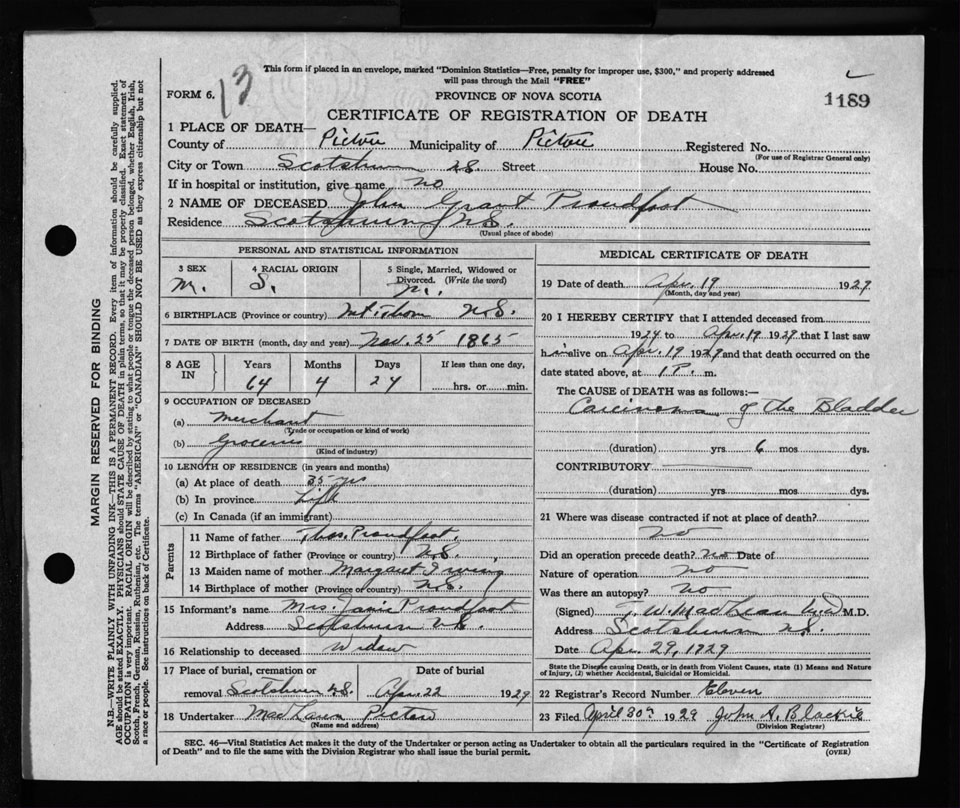 This form if placed in an envelope, marked "Dominion Statistics—Free, penalty for improper use, $300," and properly addressed
will pass through the Mail "FREE"
FORM 6.
13
PROVINCE OF NOVA SCOTIA
1189
CERTIFICATE OF REGISTRATION OF DEATH
1 PLACE OF DEATH—
County of Pictou Municipality of Pictou Registered No.
(For use of Registrar General only)
City or Town Scotsburn N.S. Street House No.
If in hospital or institution, give name no
2 NAME OF DECEASED John Grant Proudfoot
Residence Scotsburn N.S.
(Usual place of abode)
PERSONAL AND STATISTICAL INFORMATION
3 SEX 4 RACIAL ORIGIN 5 Single, Married, Widowed or
Divorced. (Write the word)
M. S. M.
6 BIRTHPLACE (Province or country) N.S.
7 DATE OF BIRTH (month, day and year) Nov. 25 1865
8 AGE IN Years Months Days If less than one day,
64 4 24 hrs. or min.
9 OCCUPATION OF DECEASED
(a) Merchant
(Trade or occupation or kind of work)
(b) Groceries
(Kind of industry)
10 LENGTH OF RESIDENCE (in years and months)
(a) At place of death 35 yrs
(b) In province Life
(c) In Canada (if an immigrant)
Parents
11 Name of father Thos. Proudfoot.
12 Birthplace of father (Province or country) N.S.
13 Maiden name of mother Margaret Irving
14 Birthplace of mother (Province or country) N.S.
15 Informant's name Mrs. Janie Proudfoot
Address Scotsburn N.S.
16 Relationship to deceased Widow
17 Place of burial, cremation or Date of burial
removal Scotsburn N.S. Apr. 22 1929
18 Undertaker Pictou
(Name and address)
MEDICAL CERTIFICATE OF DEATH
19 Date of death Apr. 19 1929
(Month, day and year)
20 I HEREBY CERTIFY that I attended deceased from
1929 to Apr. 19 1929 that I last saw
him alive on Apr. 19 1929 and that death occurred on the
date stated above, at 1 P. m.
The CAUSE of DEATH was as follows:
Carcinoma of the Bladder
(duration) yrs 6 mos dys.
CONTRIBUTORY
(duration) yrs mos dys.
21 Where was disease contracted if not at place of death?
no
Did an operation precede death? no Date of
Nature of operation no
Was there an autopsy? no
(Signed) T. W. MacLean M.D M.D.
Address Scotsburn N.S.
Date Apr. 29, 1929
State the Disease causing Death, or in death from Violent Causes, state (1) Means and Nature
of Injury, (2) whether Accidental, Suicidal or Homicidal.
22 Registrar's Record Number Eleven
23 Filed April 30th 1929 John A. Blackie
(Division Registrar)
SEC. 46—Vital Statistics Act makes it the duty of the Undertaker or person acting as Undertaker to obtain all the particulars required in the "Certificate of Registration
of Death" and to file the same with the Division Registrar who shall issue the burial permit. (OVER)
MARGIN RESERVED FOR BINDING
N.B.—WRITE PLAINLY WITH UNFADING INK—THIS IS A PERMANENT RECORD. Every item of information should be carefully supplied.
AGE should be stated EXACTLY. PHYSICIANS should STATE CAUSE OF DEATH in plain terms, so that it may be properly classified. Exact statement of
OCCUPATION is very important. RACIAL ORIGIN will be described by stating to what people or tongue the deceased person belonged, whether English, Irish,
Scotch, French, German, Russian, Ruthenian, etc. The terms "AMERICAN" or "CANADIAN" SHOULD NOT BE USED as they express citizenship but not
a race or people. See instructions on back of Certificate.